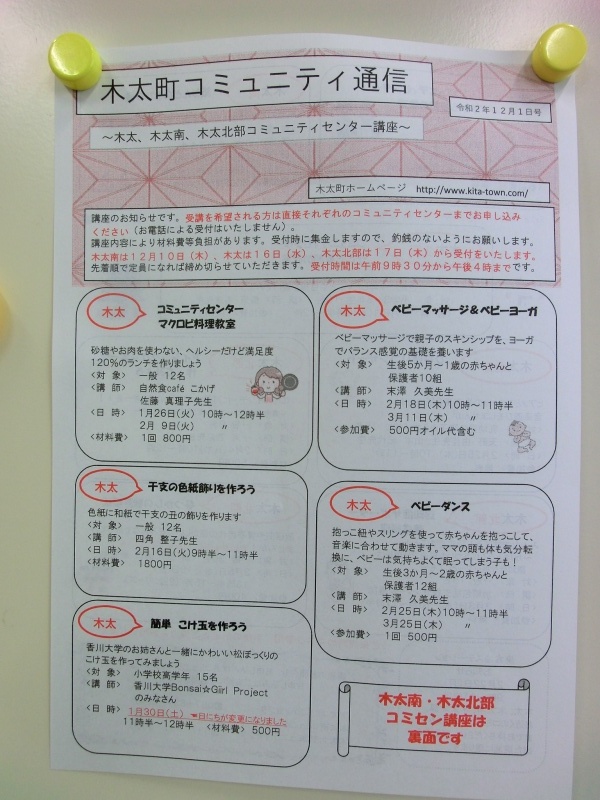 木太町コミュニティ通信
令和２年１２月１日号
～木太、木太南、木太北部コミュニティセンター講座～
木太町ホームページ http://www.kita-town.com/
講座のお知らせです。受講を希望される方は直接それぞれのコミュニティセンターまでお申し込み
ください（お電話による受付はいたしません）。
講座内容により材料費等負担があります。受付時に集金しますので、釣銭のないようにお願いします。
木太南は１２月１０日（木）、木太は１６日（水）、木太北部は１７日（木）から受付をいたします。
先着順で定員になれば締め切らせていただきます。受付時間は午前９時３０分から午後４時までです。
木太
コミュニティセンター
マクロビ料理教室
砂糖やお肉を使わない、ヘルシーだけど満足度
120%のランチを作りましょう
<対 象> 一般 12名
<講 師> 自然食café こかげ
佐藤 真理子先生
<日 時> 1月26日(火) 10時～12時半
2月 9日(火) 〃
<材料費> 1回 800円
木太
干支の色紙飾りを作ろう
色紙に和紙で干支の丑の飾りを作ります
<対 象> 一般 12名
<講 師> 四角 整子先生
<日 時> 2月16日(火)9時半～11時半
<材料費> 1800円
木太
簡単 こけ玉を作ろう
香川大学のお姉さんと一緒にかわいい松ぼっくりの
こけ玉を作ってみましょう
<対 象> 小学校高学年 15名
<講 師> 香川大学Bonsai☆Girl Project
のみなさん
<日 時> 1月30日(土) ☚日にちが変更になりました
11時半～12時半 <材料費> 500円
木太
ベビーマッサージ＆ベビーヨーガ
ベビーマッサージで親子のスキンシップを、ヨーガ
でバランス感覚の基礎を養います
<対 象> 生後5か月～1歳の赤ちゃんと
保護者10組
<講 師> 末澤 久美先生
<日 時> 2月18日(木)10時～11時半
3月11日(木) 〃
<参加費> 500円オイル代含む
木太
ベビーダンス
抱っこ紐やスリングを使って赤ちゃんを抱っこして、
音楽に合わせて動きます。ママの頭も体も気分転
換に、ベビーは気持ちよくて眠ってしまう子も！
<対 象> 生後3か月～2歳の赤ちゃんと
保護者12組
<講 師> 末澤 久美先生
<日 時> 2月25日(木)10時～11時半
3月25日(木) 〃
<参加費> 1回 500円
木太南・木太北部
コミセン講座は
裏面です